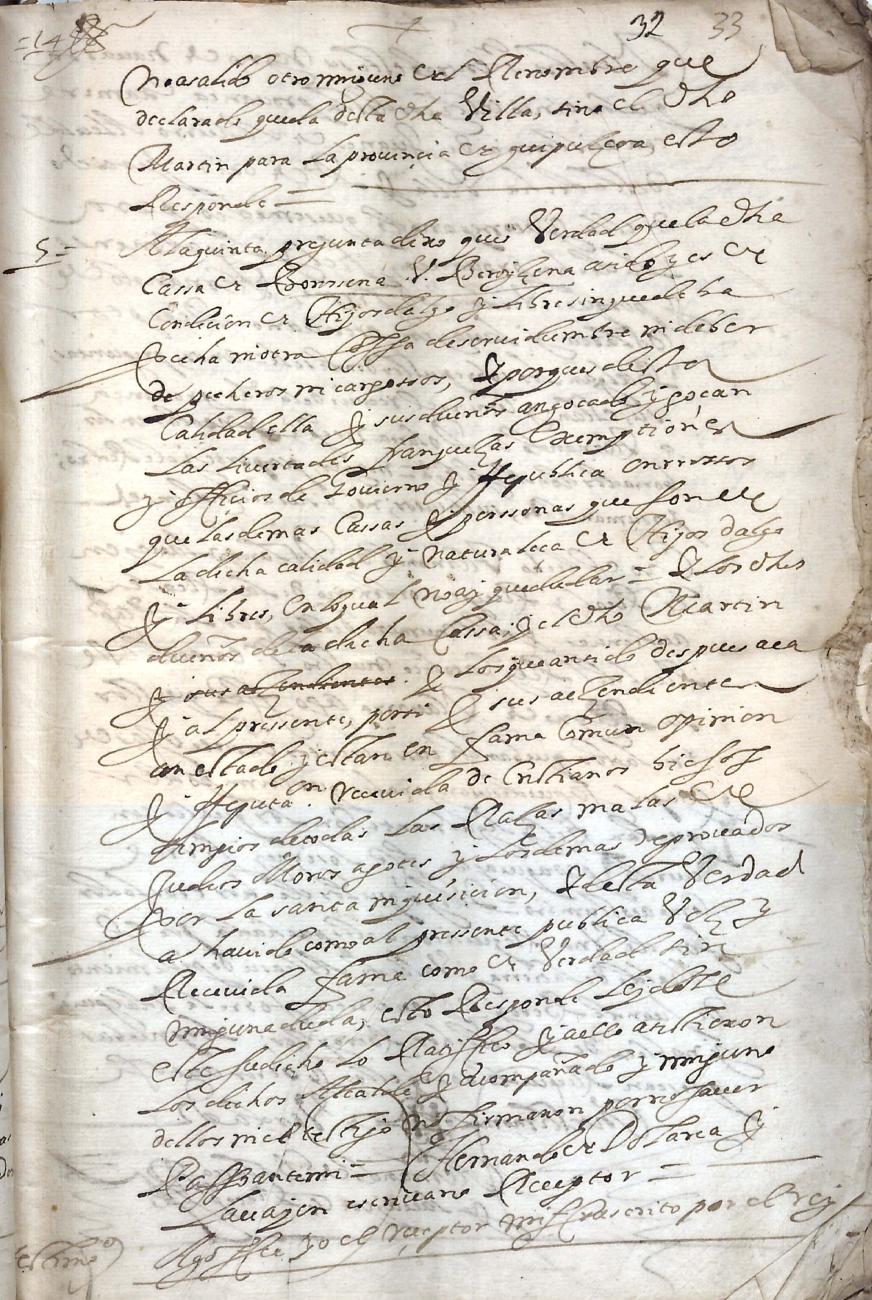 32 33
no a salido otro ninguno del Renombre que
declarado queda desta dha Villa, sino el dho
Martin para la provinçia de guipuzcoa, esto
Responde =
5 = A la quinta pregunta dixo ques Verdad que la dha
Cassa de a sido y es de
Condicion de Hijosdalgo y Libre sin que deba
pecha ni otra cossa de servidumbre ni deber
de pecheros ni cargossos, y porques desta
Calidad ella y sus dueños an gocado y goçan
Las livertades franqueças Exemptiones
y officios de Govierno y Republica onrrosos
que las demas Cassas y perssonas que son de
La dicha calidad y naturaleça de Hijosdalgo
y Libres, en lo qual no ay que dudar = y Los dhos
dueños de la dicha Cassa, y el dho Martin
y sus azendientes. y Los que an sido despues aca
y al pressente, y sus azendientes
an estado y estan en fama Comun opinion
y Reputaon Reciuida de Cristianos biejos
Limpios de todas Las Raças malas de
Judios Moros agotes y Los demas Reprovados
por La santa inquisicion, y desta Verdad
a havido como al pressente publica Voz y
Receuida fama como de Verdad sin
ninguna duda, esto Responde Leydole
este su dicho Lo Ratiffico y a ello asistieron
Los dichos Alcalde y acompañado y ninguno
dellos ni el testigo no firmaron por no saver
Passo ante mi = Hernando de y
escrivano Receptor =
fee yo el Receptor infrascrito por el Rey